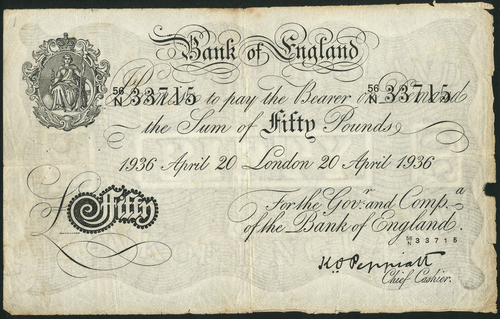 Bank of England
56/N 33715 to pay the Bearer on 56/N 33715
the Sum of Fifty Pounds
1936 April 20 London 20 April 1936
For the Govr. and Compa.
of the Bank of England.
56/N 33715
£ Fifty
K.O. Peppiatt
Chief Cashier.